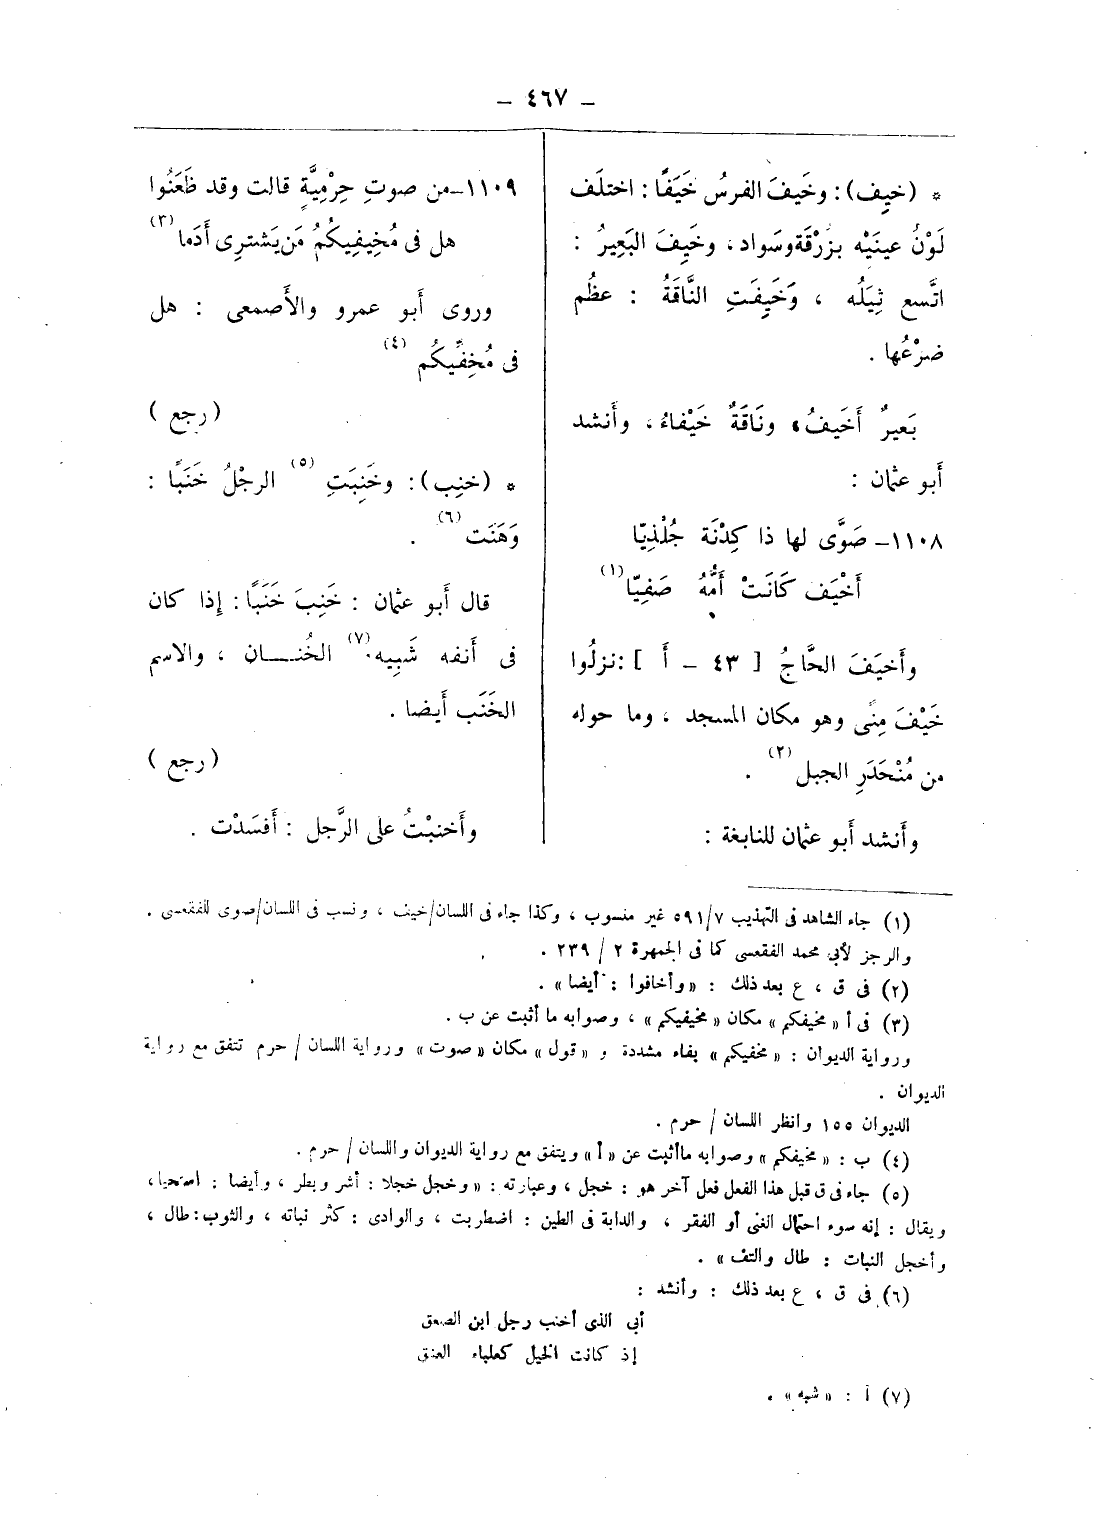 – ٤٦٧ –
* (خيف): وخَيِفَ الفرسُ خَيَفًا: اختلَف
لَوْنُ عينَيْه بزُرْقَة وسَواد، وخَيِفَ البَعِيرُ :
اتَّسع ثِيَلُه ، وَخَيِفَتِ النَّاقَةُ : عظُم
ضرْعُها .
بَعيرٌ أَخَيفُ، ونَاقَةٌ خَيْفاءُ، وأَنشد
أَبو عثمان :
١١٠٨– صَوَّى لها ذا كِدْنَة جُلْذِيّا
أَخْيَف كَانَتْ أُمُّهُ صَفِيّا(١)
وأَخيَفَ الحَّاجُ [ ٤٣ – أ ]: نزلُوا
خَيْفَ مِنًى وهو مكان المسجد ، وما حوله
من مُنْحَدَرِ الجبل(٢) .
وأَنشد أَبو عثمان للنابغة :
١١٠٩–من صوتِ حِرْمِيَّةٍ قالت وقد ظَعَنُوا
هل فى مُخِيفِيكُمُ مَن يَشترى أَدَما(٣)
وروى أَبو عمرو والأَصمعى : هل
فى مُخِفِّيكُم(٤)
(رجع)
* (خنِب): وخَنِبَتِ(٥) الرجْلُ خَنَبًا :
وَهَنَت(٦) .
قال أَبو عثمان : خَنِبَ خَنَبًا: إذا كان
فى أَنفه شَبِيه(٧) الخُنــان ، والاسم
الخَنَب أَيضا .
(رجع)
وأَخنبْتُ على الرَّجل : أَفسَدْت .
(١) جاء الشاهد فى التهذيب ٥٩١/٧ غير منسوب ، وكذا جاء فى اللسان/خيف ، ونسب فى اللسان/صوى للفقعسى .
والرجز لأبى محمد الفقعسى كما فى الجمهرة ٢ / ٢٣٩ .
(٢) فى ق ، ع بعد ذلك : «وأخافوا : أيضا» .
(٣) فى أ «مخيفكم» مكان «مخيفيكم» ، وصوابه ما أثبت عن ب .
ورواية الديوان : «مخفيكم» بفاء مشددة و «قول» مكان «صوت» ورواية اللسان / حرم تتفق مع رواية
الديوان .
الديوان ١٥٥ وانظر اللسان / حرم .
(٤) ب : «مخيفكم» وصوابه ماأثبت عن «أ» ويتفق مع رواية الديوان واللسان / حرم .
(٥) جاء فى ق قبل هذا الفعل فعل آخر هو : خجل ، وعبارته : «وخجل خجلا : أشر وبطر ، وأيضا : استحيا،
ويقال : إنه سوء احتمال الغنى أو الفقر ، والدابة فى الطين : اضطربت ، والوادى : كثر نباته ، والثوب: طال ،
وأخجل النبات : طال والتف» .
(٦) فى ق ، ع بعد ذلك : وأنشد :
أبى الذى أخنب رجل ابن الصعق
إذ كانت الخيل كعلباء العنق
(٧) أ : «شبه» .